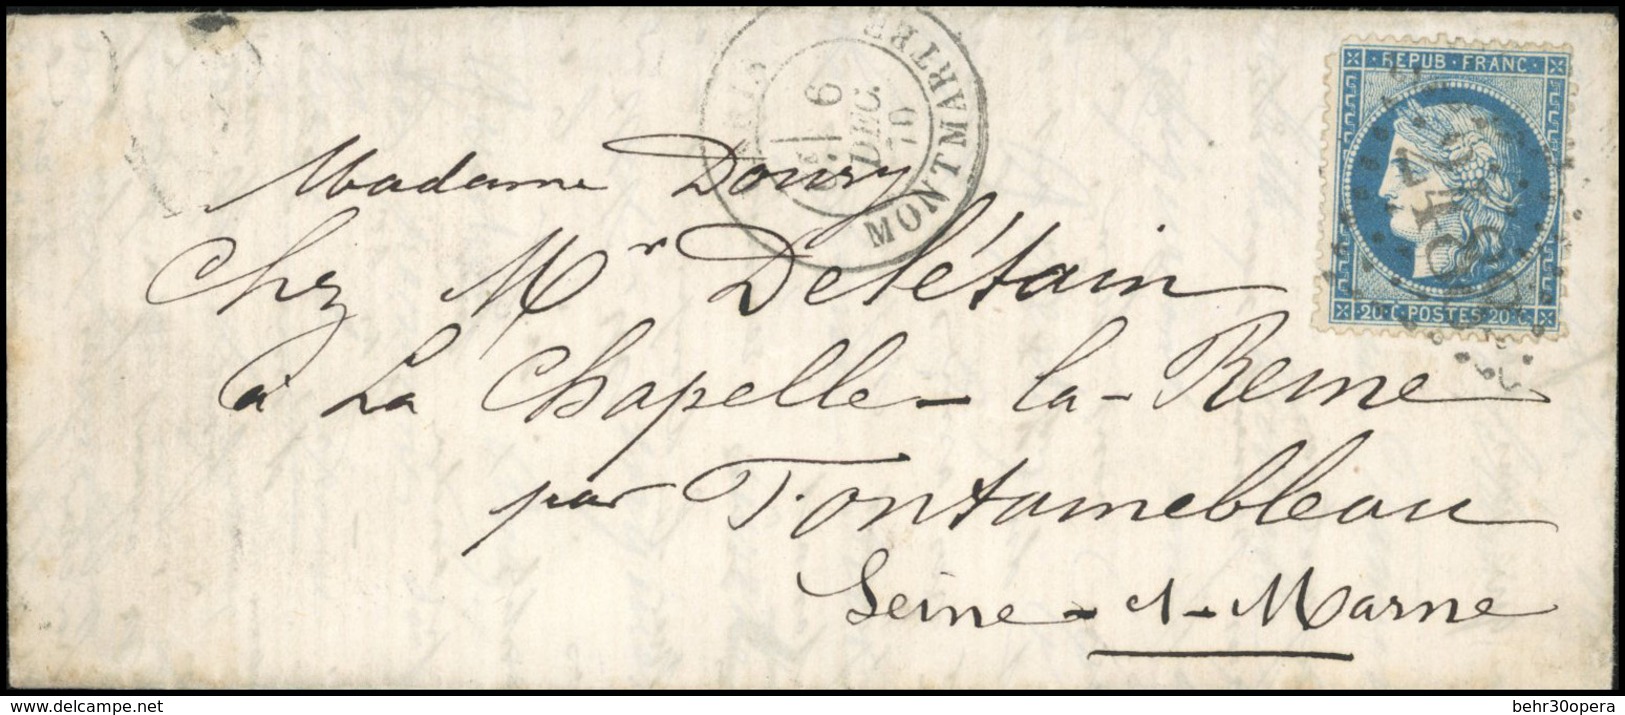 PARIS MONTMARTRE
6
DEC.
70
REPUB·FRANC·
20·C·POSTES·20·C·
Madame Doury
Chez Mr Delétain
à La Chapelle-la-Reine
par Fontainebleau
Seine-&-Marne
www.delcampe.net
behr30opera